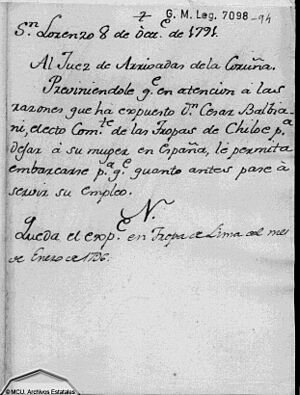 2
G. M. Leg. 7098-94
Sn. Lorenzo 8 de Octe. de 1791.
Al Juez de Arrivadas de la Coruña.
Previniendole qe. en atencion a las
razones que ha expuesto Dn. Cesar Balbia
ni, electo Comte. de las Tropas de Chiloe pa.
dejar á su muger en España, le permita
embarcarse pa. qe. quanto antes pase à
servir su empleo.
N.
Queda el expte. en Tropa de Lima del mes
de Enero de 1796.
© MCU. Archivos Estatales